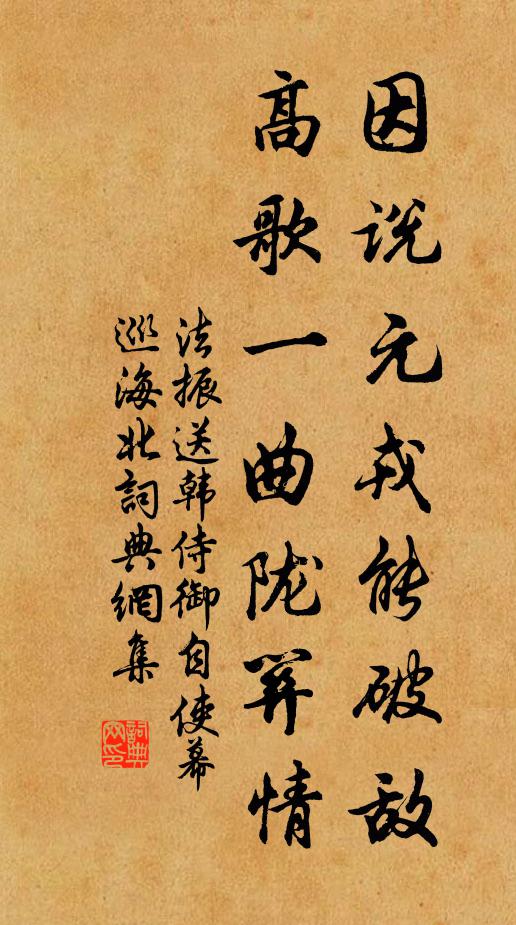 因说元戎能破敌
高歌一曲陇关情
法振送韩侍御自使幕
巡海北詞典網集
詞典
网印